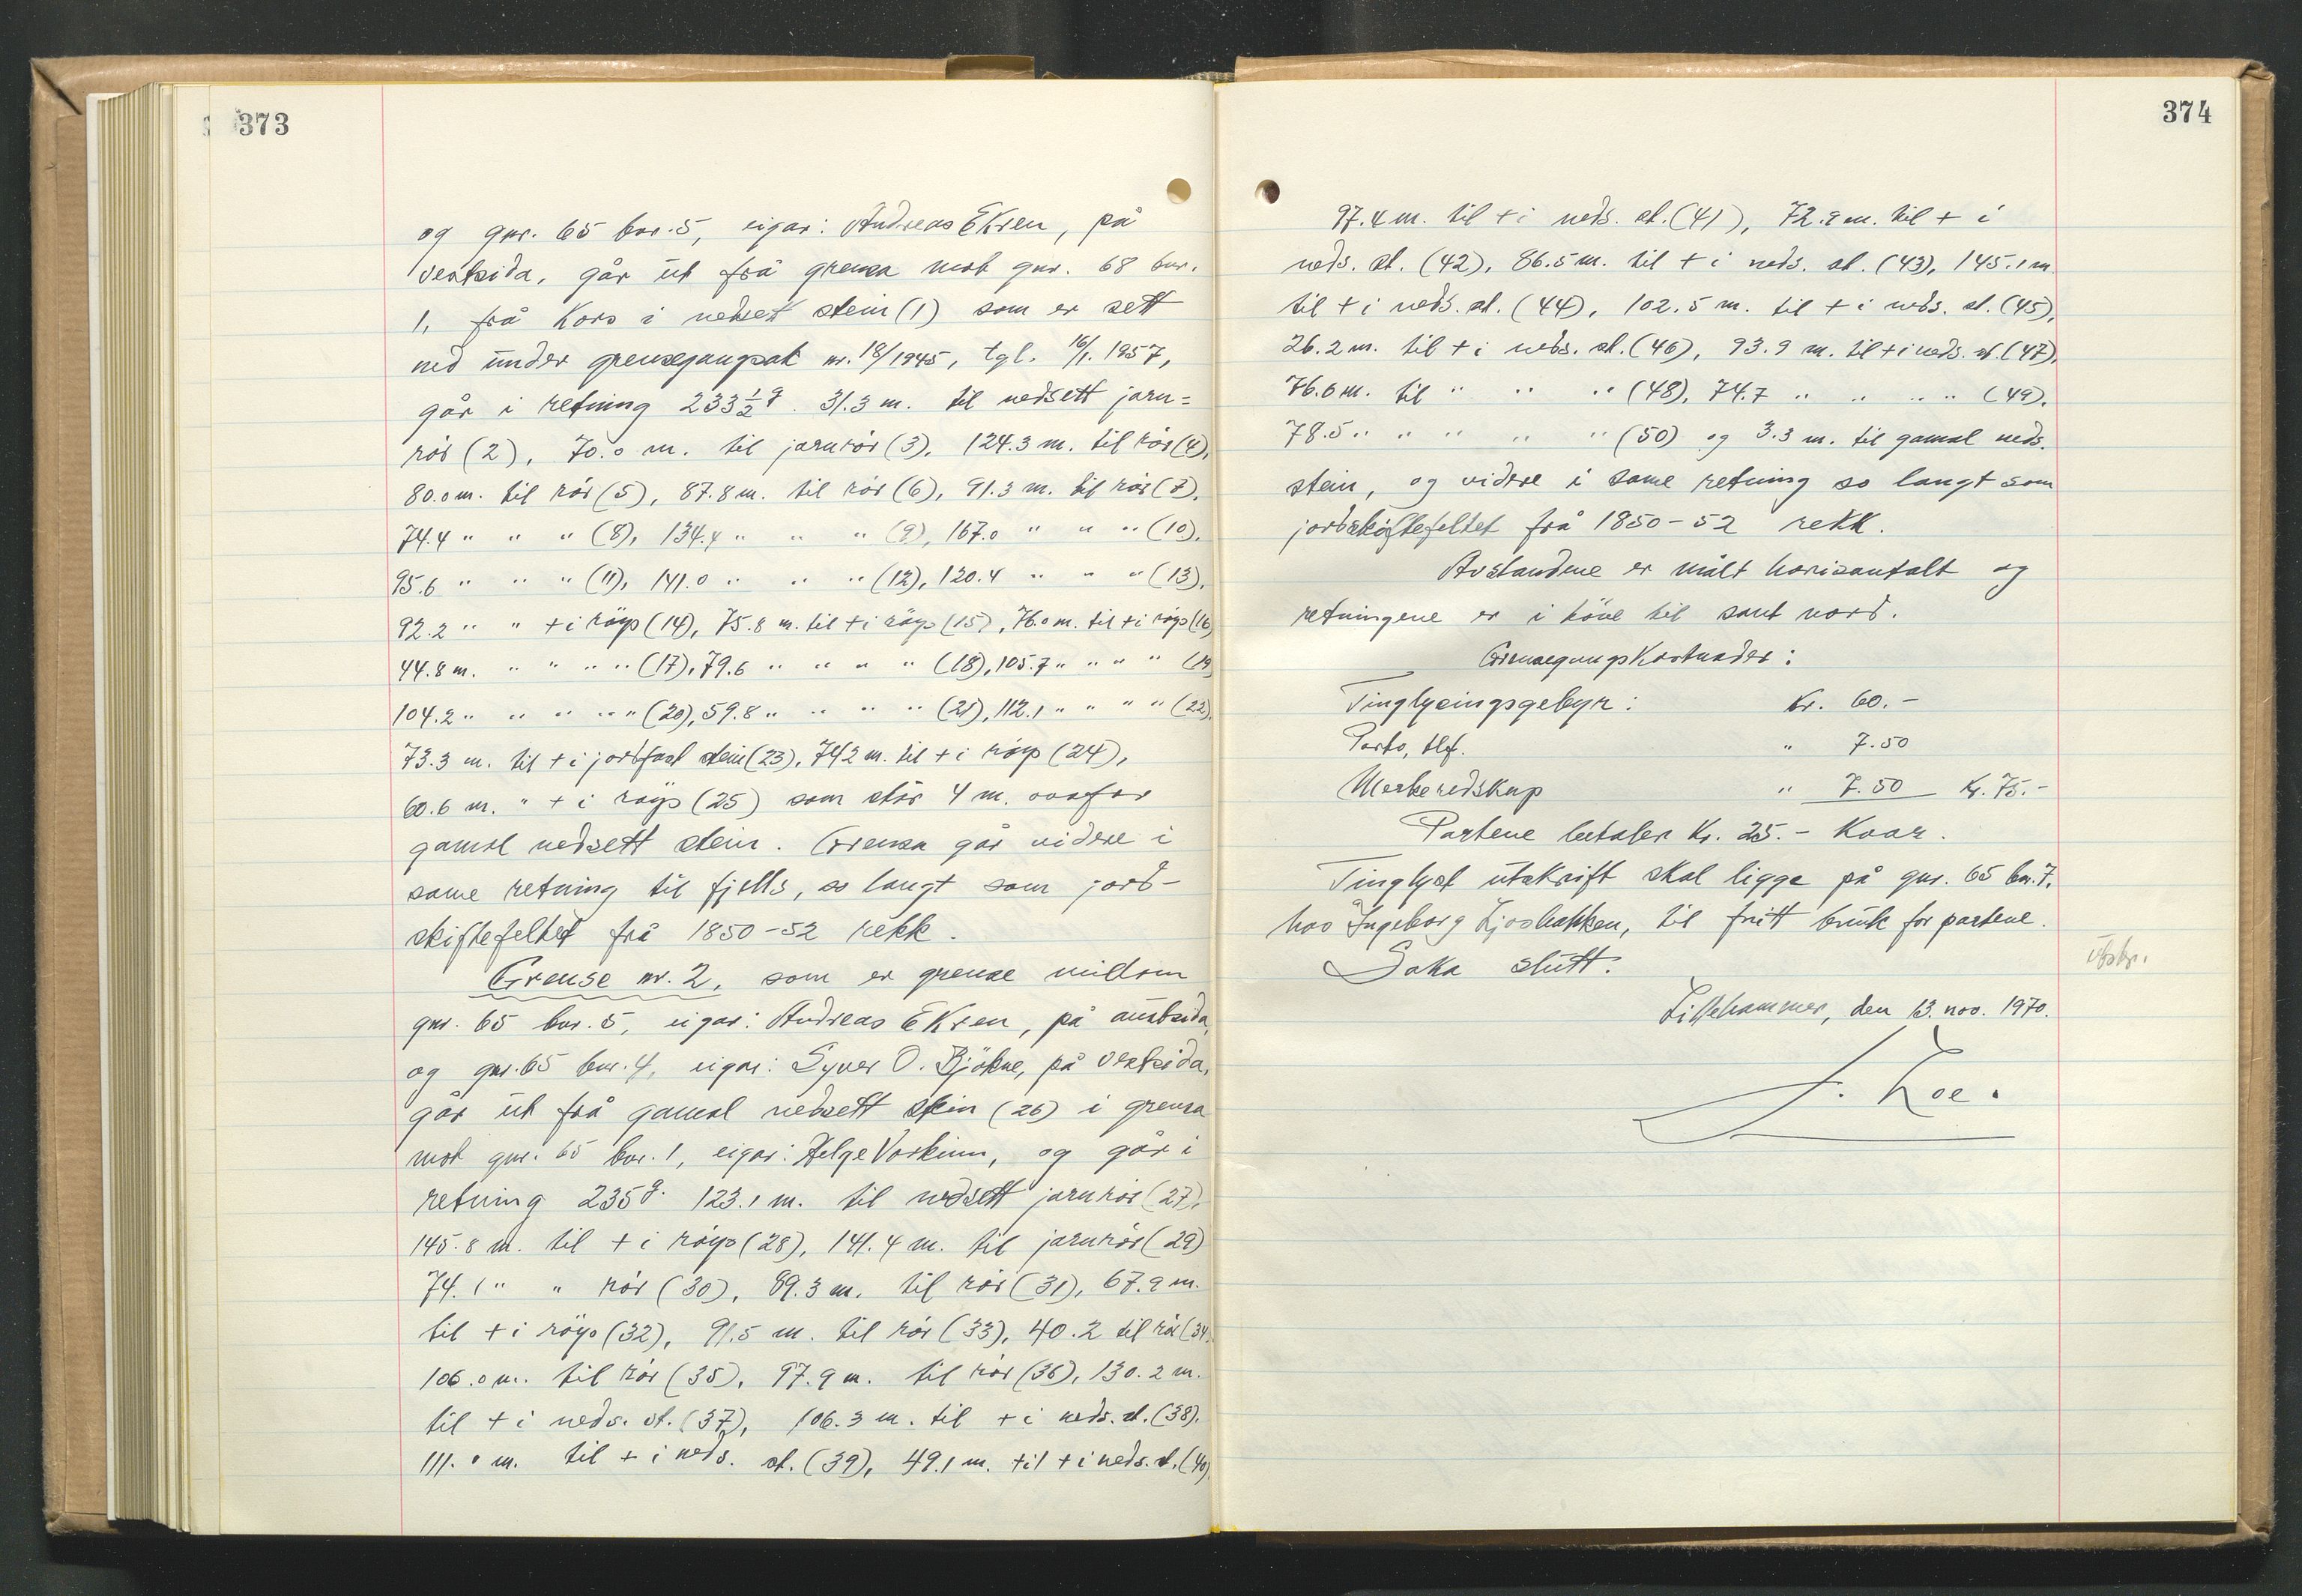 373
og gnr. 65 bnr. 5, eigar: Andreas Ekren, på
vestsida, går ut frå grensa mot gnr. 68 bnr.
1, frå kors i nedsett stein (1) som er sett
ned under grensegangsak nr. 18/1945, tgl. 16/1. 1957,
går i retning 233 1/2 g. 31.3 m. til nedsett jarn=
rör (2), 70.0 m. til jarnrör (3), 124.3 m. til rör (4),
80.0 m. til rör (5), 87.8 m. til rör (6), 91.3 m. til rör (7),
74.4 " " " (8), 134.4 " " " (9), 167.0 " " " (10),
95.6 " " " (11), 141.0 " " " (12), 120.4 " " " (13),
92.2 " " + i röys (14), 75.8 m. til + i röys (15), 76.0 m. til + i röys (16)
44.8 m. " " " " (17), 79.6 " " " " (18), 105.7 " " " " (19)
104.2 " " " " " (20), 59.8 " " " " (21), 112.1 " " " " (22),
73.3 m. til + i jordfast stein (23), 74.2 m. til + i röys (24),
60.6 m. " + i röys (25) som står 4 m. ovafor
gamal nedsett stein. Grensa går vidare i
same retning til fjells, so langt som jord-
skiftefeltet frå 1850-52 rekk.
Grense nr. 2, som er grense millom
gnr. 65 bnr. 5, eigar: Andreas Ekren, på austsida,
og gnr. 65 bnr. 4, eigar: Syver O. Bjökne, på vestsida,
går ut frå gamal nedsett stein (26) i grensa
mot gnr. 65 bnr. 1, eigar: Helge Vorkinn, og går i
retning 235 g. 123.1 m. til nedsett jarnrör (27),
145.8 m. til + i röys (28), 141.4 m. til jarnrör (29)
74.1 " " rör (30), 89.3 m. til rör (31), 67.9 m.
til + i röys (32), 91.5 m. til rör (33), 40.2 til rör (34)
106.0 m. til rör (35), 97.9 m. til rör (36), 130.2 m.
til + i neds. st. (37), 106.3 m. til + i neds. st. (38),
111.0 m. til + i neds. st. (39), 49.1 m. til + i neds. st. (40)
374
97.4 m. til + i neds. st. (41), 72.2 m. til + i
neds. st. (42), 86.5 m. til + i neds. st. (43), 145.1 m.
til + i neds. st. (44), 102.5 m. til + i neds. st. (45),
26.2 m. til + i neds. st. (46), 93.9 m. til + i neds. st. (47),
76.6 m. til " " " (48), 74.7 " " " " (49),
78.5 " " " " " (50) og 3.3 m. til gamal neds.
stein, og videre i same retning so langt som
jordskiftefeltet frå 1850-52 rekk.
Avstandene er målt horisontalt og
retningene er i höve til sant nord.
Grensegangskostnader:
Tinglysingsgebyr: kr. 60.-
Porto, tlf. " 7.50
Merkeredskap " 7.50 kr. 75.-
Partene betaler kr. 25.- kvar.
Tinglyst utskrift skal ligge på gnr. 65 bnr. 7,
hos Ingeborg Ljosbakken, til fritt bruk for partene.
Saka slutt.
utskr.
Lillehammer, den 13. nov. 1970.